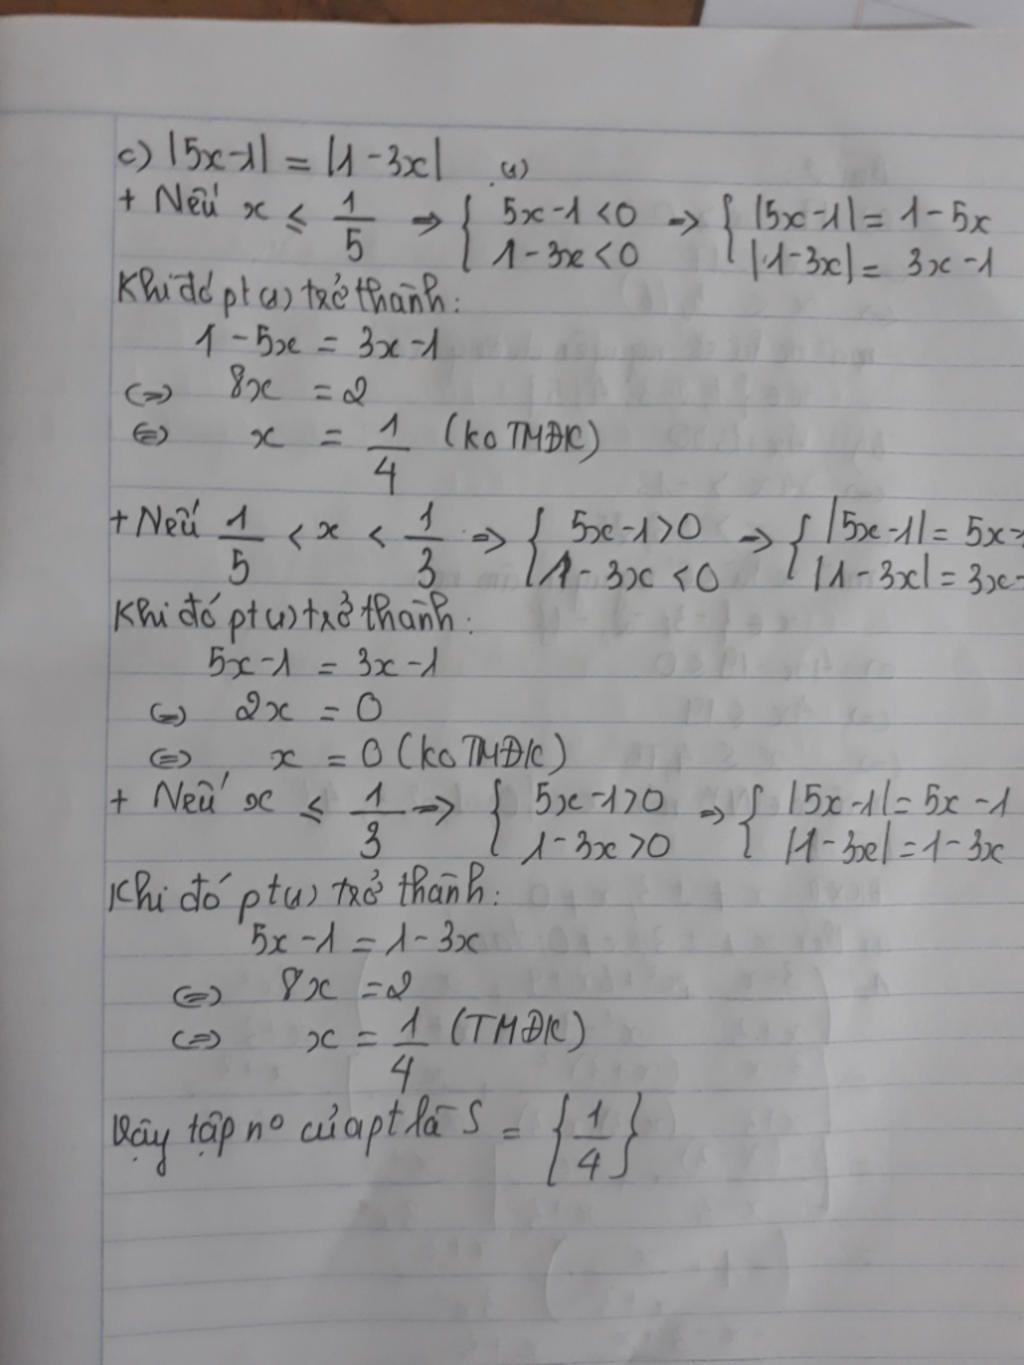 c) |5x-1| = |1-3x| (1)
+ Nếu x ≤ 1/5 => { 5x-1<0 ; 1-3x<0 => { |5x-1| = 1-5x ; |1-3x| = 3x-1
Khi đó pt (1) trở thành:
1-5x = 3x-1
<=> 8x = 2
<=> x = 1/4 (ko TMĐK)
+ Nếu 1/5 < x < 1/3 => { 5x-1>0 ; 1-3x<0 => { |5x-1| = 5x- ; |1-3x| = 3x-
Khi đó pt (1) trở thành:
5x-1 = 3x-1
<=> 2x = 0
<=> x = 0 (ko TMĐK)
+ Nếu x ≤ 1/3 => { 5x-1>0 ; 1-3x>0 => { |5x-1| = 5x-1 ; |1-3x| = 1-3x
Khi đó pt (1) trở thành:
5x-1 = 1-3x
<=> 8x = 2
<=> x = 1/4 (TMĐK)
Vậy tập nº của pt là S = {1/4}